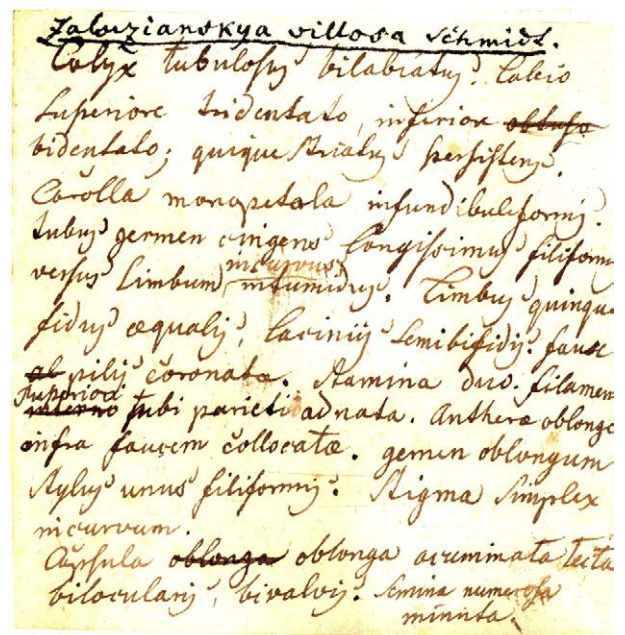 Zaluzianskya villosa Schmidt.
Calyx tubulosus bilabiatus. Labio
superiore tridentato, inferiore obtuso
bidentato; quinque striatus persistens.
Corolla monopetala infundibuliformis.
tubus germen cingens longissimus filiformis
incurvus,
versus limbum intumidus. Limbus quinque
fidus æqualis, laciniis semibifidis. fauce
al pilis coronata. Stamina duo. filamen
superiori
interno tubi parieti adnata. Antheræ oblongæ
infra faucem collocatæ. germen oblongum
stylus unus filiformis. Stigma simplex
incurvum.
Capsula oblonga oblonga acuminata tecta
bilocularis, bivalvis. Semina numerosa
minuta.